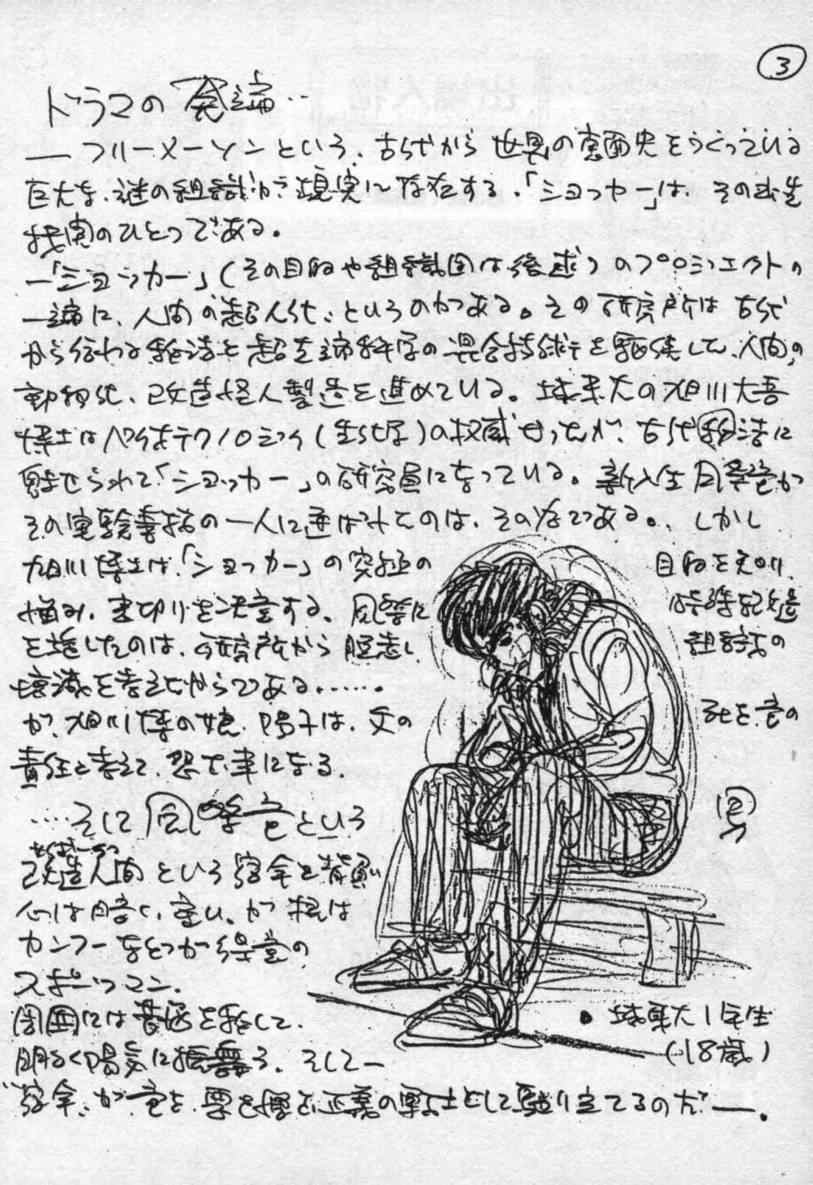 3
ドラマの発端…
― フリーメーソンという、古代から世界の裏面史をつくっている
巨大な、謎の組織が現実に存在する。「ショッカー」は、その出先
機関のひとつである。
―「ショッカー」(その目的や組織図は後述)のプロジェクトの
一端に、人間の超人化、というのがある。その研究所は古代
から伝わる秘法と超先端科学の混合技術を駆使して、人間の
動物化、改造怪人製造を進めている。城東大の旭川大吾
博士はバイオテクノロジィ(生化学)の権威だったが、古代秘法に
魅せられて「ショッカー」の研究員になっている。新入生 風祭竜が
その実験素材の一人に選ばれたのは、その為である。しかし
旭川博士は、「ショッカー」の究極の目的を知り、
悩み、裏切りを決意する。風祭に特殊改造
を施したのは、研究所から脱走し、組織の
壊滅を考えたからである……
が、旭川博士の娘、陽子は、父の死を、竜の
責任と考えて、怨む事になる。
…そして風祭竜という
改造人間という宿命を背負い
心は暗く、重い。が根は
カンフーなどが得意の
スポーツマン。
周囲には普通を装って、
明るく陽気に振舞う。そして―
"宿命"が竜を、悪を撃つ正義の戦士として駆り立てるのだ―。
• 城東大1年生
(18歳)